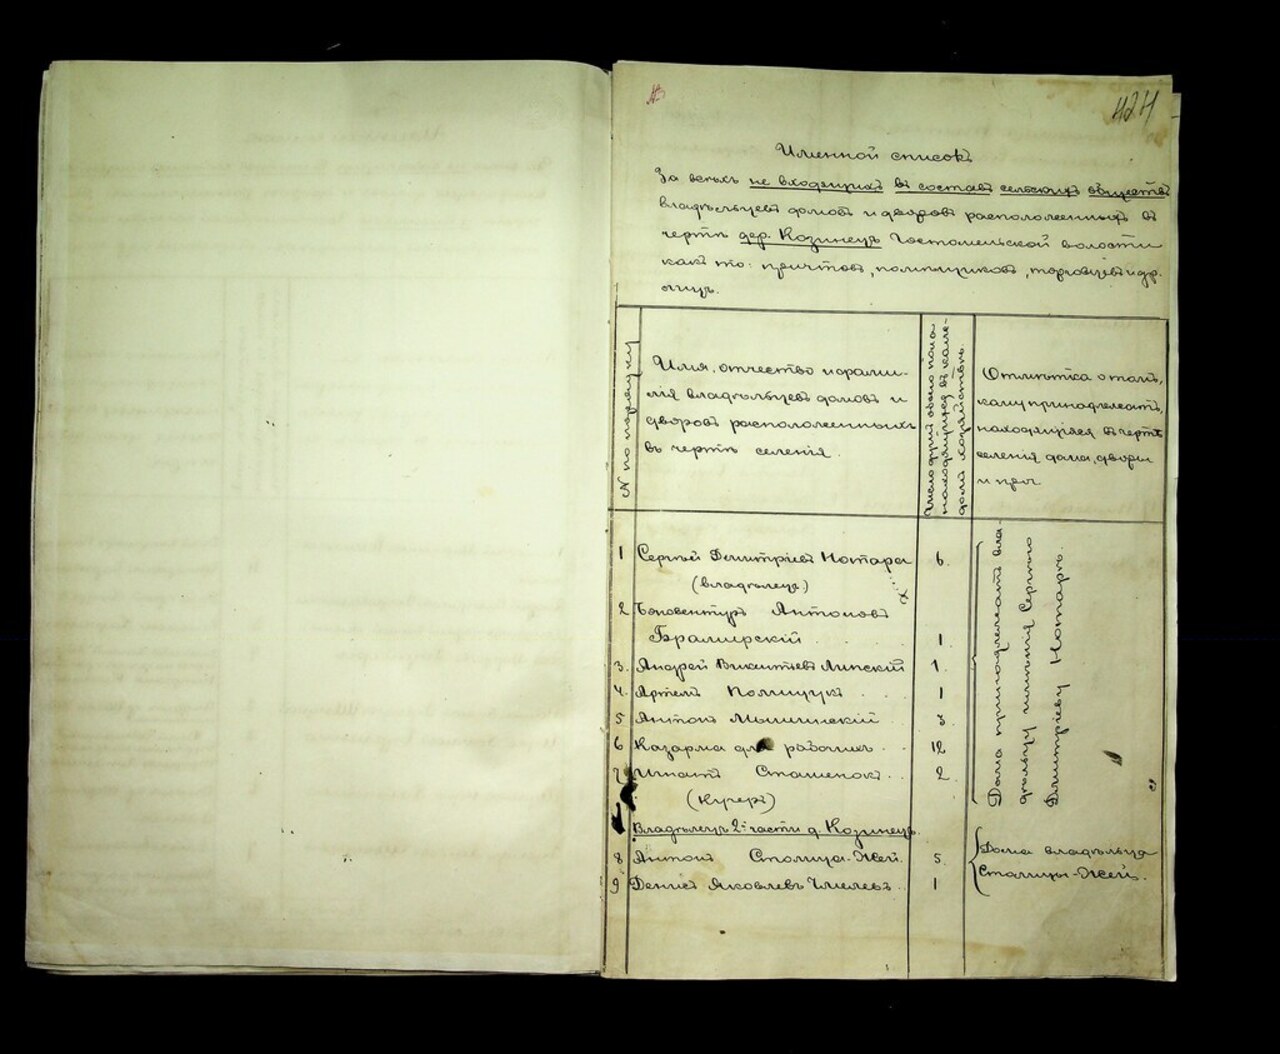 424
Именной списокъ
За всѣхъ не входящихъ въ составъ сельскихъ обществъ
владѣльцевъ домовъ и дворовъ расположенныхъ въ
чертѣ дер. Козинецъ Гостомельской волости
какъ то: причтовъ, помѣщиковъ, торговцевъ и др.
лицъ.
N по порядку
Имя, отчество и фами-
лія владѣльцевъ домовъ и
дворовъ расположенныхъ
въ чертѣ селенія.
Число душъ обоего пола
находящихся въ каж-
домъ хозяйствѣ.
Отмѣтка о томъ,
кому принадлежатъ,
находящіяся въ чертѣ
селенія дома, дворы
и проч.
1 Сергѣй Дмитріевъ Нотара 6.
(владѣлецъ)
2 Антоновъ
1.
3. Андрей Викентьевъ Липскій 1.
4. Артемъ Полищукъ . . . 1
5 Антонъ
6 Казарма для рабочихъ . . 12
7 Игнатъ Сташенокъ . . 2
(кучеръ)
Дома принадлежатъ вла-
дѣльцу имѣнія Сергѣю
Дмитріеву Нотарѣ.
Владѣлецъ 2й части д. Козинецъ.
8 Антонъ Столица-Жей. 5.
9 Денисъ Яковлевъ Чмелевъ . 1
Дома владѣльца
Столицы-Жей.